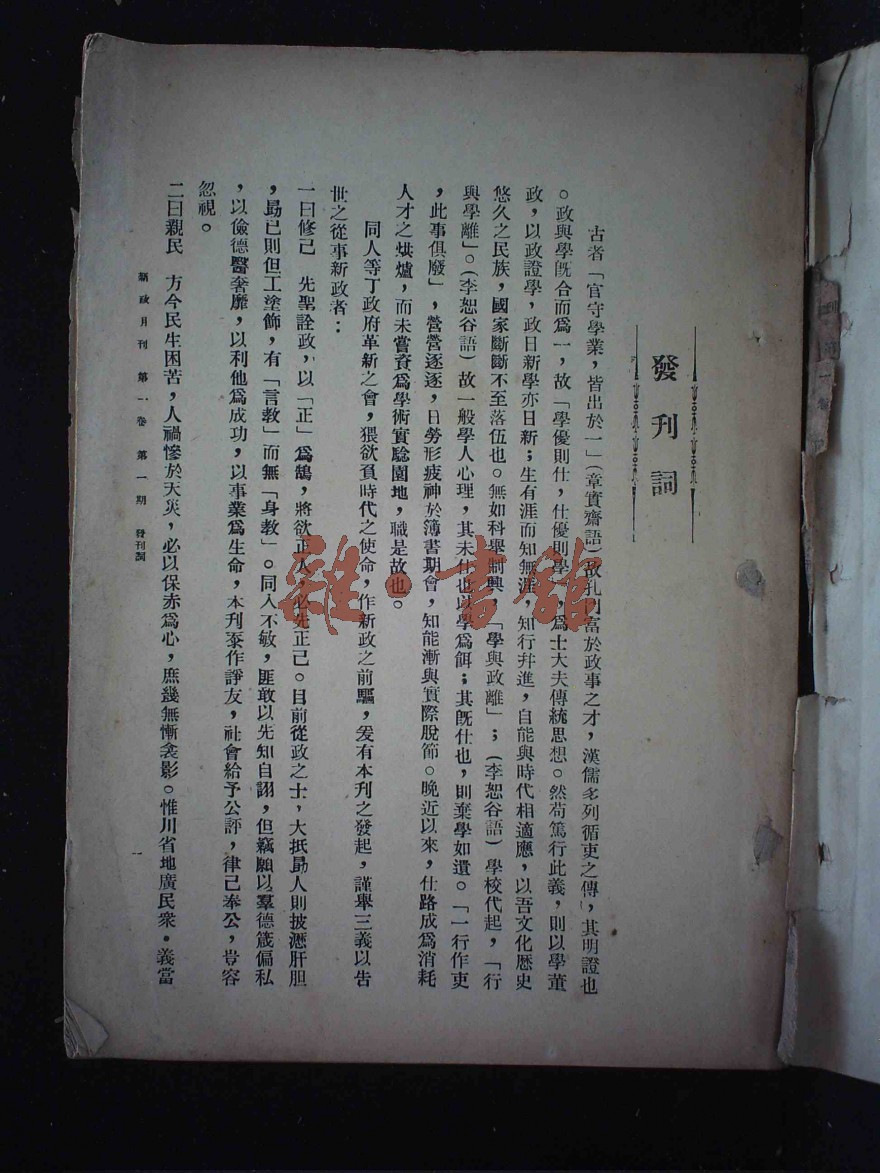 發刊詞
古者「官守學業，皆出於一」（章實齋語）故孔門富於政事之才，漢儒多列循吏之傳，其明證也
。政與學旣合而爲一，故「學優則仕，仕優則學」，爲士大夫傳統思想。然苟篤行此義，則以學董
政，以政證學，政日新學亦日新；生有涯而知無涯，知行幷進，自能與時代相適應，以吾文化歷史
悠久之民族，國家斷斷不至落伍也。無如科舉制興，「學與政離」；（李恕谷語）學校代起，「行
與學離」。（李恕谷語）故一般學人心理，其未仕也以學爲餌；其旣仕也，則棄學如遺。「一行作吏
，此事俱廢」，營營逐逐，日勞形疲神於簿書期會，知能漸與實際脫節。晚近以來，仕路成爲消耗
人才之烘爐，而未嘗資爲學術實騐園地，職是故也。
同人等丁政府革新之會，猥欲負時代之使命，作新政之前驅，爰有本刊之發起，謹舉三義以告
世之從事新政者：
一曰修己　先聖詮政，以「正」爲鵠，將欲正人，必先正己。目前從政之士，大抵勗人則披瀝肝胆
，勗已則但工塗飾，有「言教」而無「身教」。同人不敏，匪敢以先知自詡，但竊願以羣德箴偏私
，以儉德醫奢靡，以利他爲成功，以事業爲生命，本刊忝作諍友，社會給予公評，律己奉公，豈容
忽視。
二曰親民　方今民生困苦，人禍慘於天災，必以保赤爲心，庶幾無慚衾影。惟川省地廣民衆。義當
新政月刊　第一卷　第一期　發刊詞
一
雜·書館